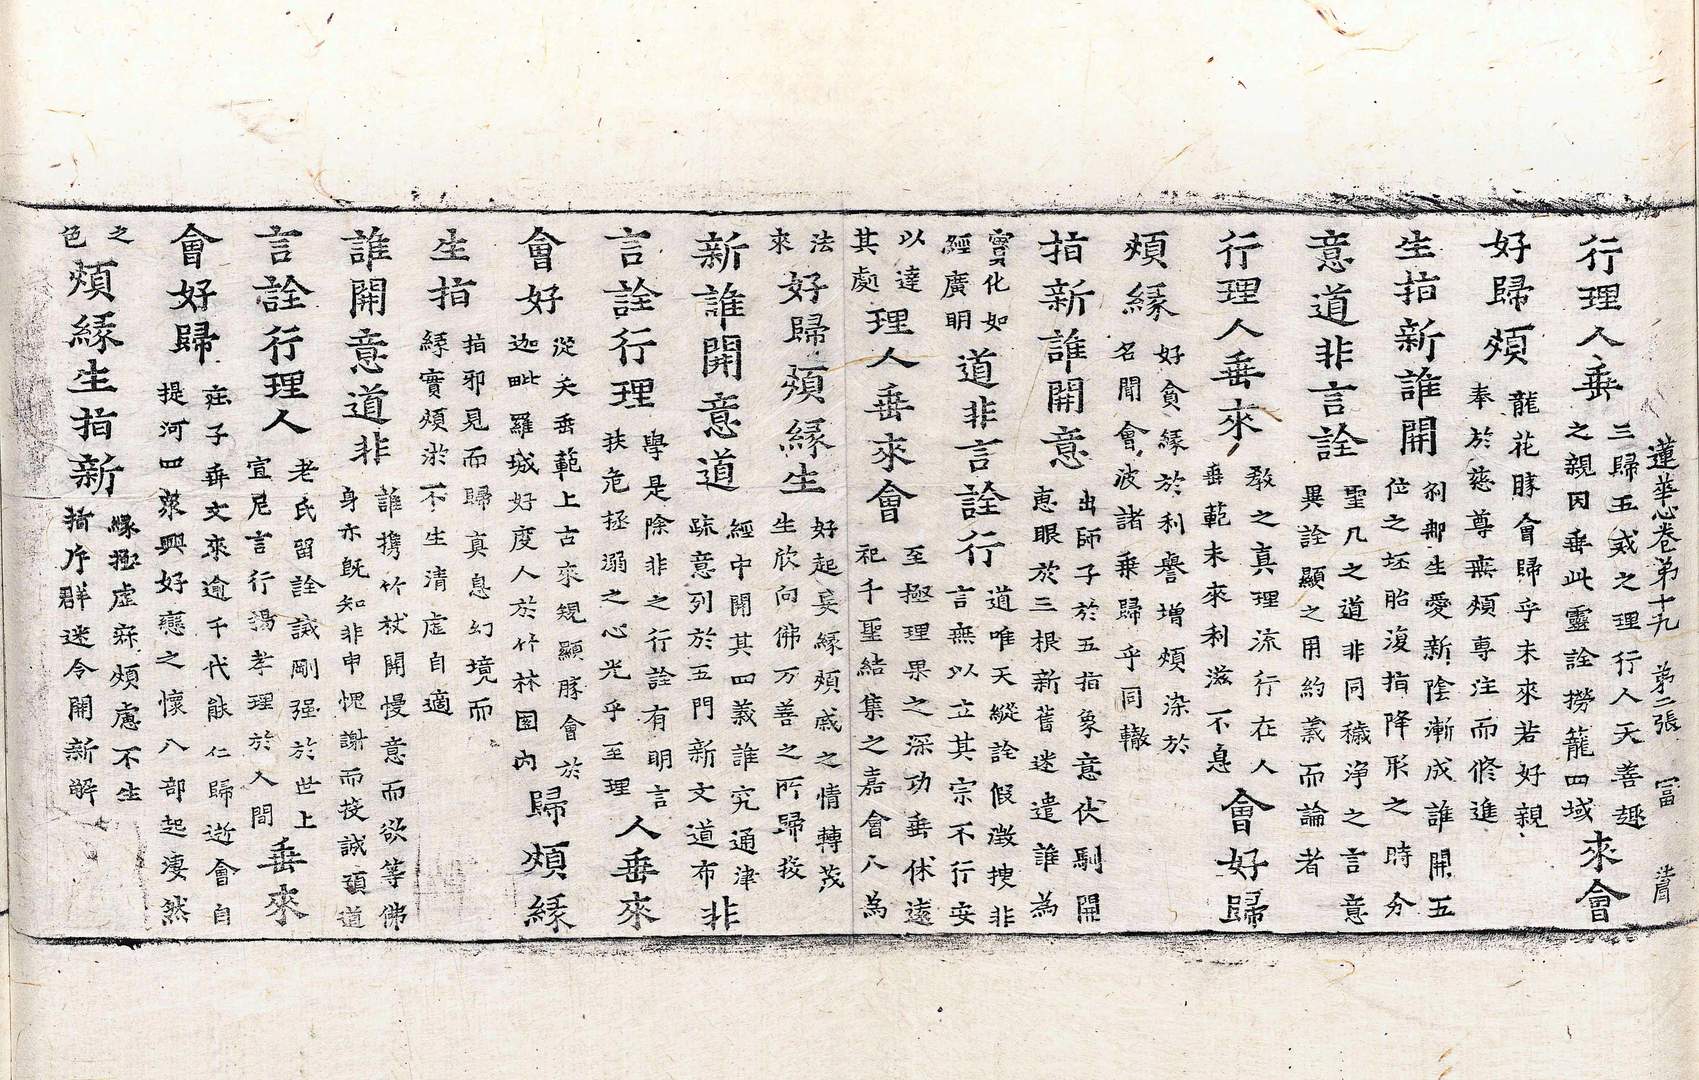 蓮華心卷第十九 第二張 冨
行理人垂
三歸五戒之理行人天善趣
之親因垂此靈詮撈籠四域
來會
好歸煩
龍花勝會歸乎未來若好親
奉於慈尊無煩專注而修進
生指新誰開
剎那生愛新陰漸成誰開五
位之坯胎復指降形之時分
意道非言詮
聖凡之道非同穢淨之言意
異詮顯之用約義而論者
行理人垂來
教之真理流行在人
垂範未來利滋不息
會好歸
煩緣
好貪緣於利譽增煩染於
名聞會波諸乘歸乎同轍
指新誰開意
出師子於五指象意伏馴開
惠眼於三根新舊迷遣誰為
靈化如
經廣明
道非言詮行
道唯天縱詮假徵搜非
言無以立其宗不行安
以達
其處
理人垂來會
至極理果之深功垂休遠
祀千聖結集之嘉會人為
法
來
好歸煩緣生
好起妄緣煩慼之情轉茂
生欣向佛万善之所歸投
新誰開意道
經中開其四義誰究通津
疏意列於五門新文道布
非
言詮行理
學是除非之行詮有明言
扶危拯溺之心光乎至理
人垂來
會好
從天垂範上古來規顯勝會於
迦毗羅城好度人於竹林園內
歸煩緣
生指
指邪見而歸真息幻境而
緣實煩淤不生清虛自適
誰開意道非
誰攜竹杖開慢意而欲等佛
身亦既知非申愧謝而投誠頂道
言詮行理人
老氏留詮誡剛强於世上
宣尼言行揚孝理於人間
垂來
會好歸
莊子垂文來逾千代能仁歸逝會自
提河四衆興好戀之懷八部起淒然
之
色
煩緣生指新
緣極虛寂煩慮不生
指斥群迷令開新解